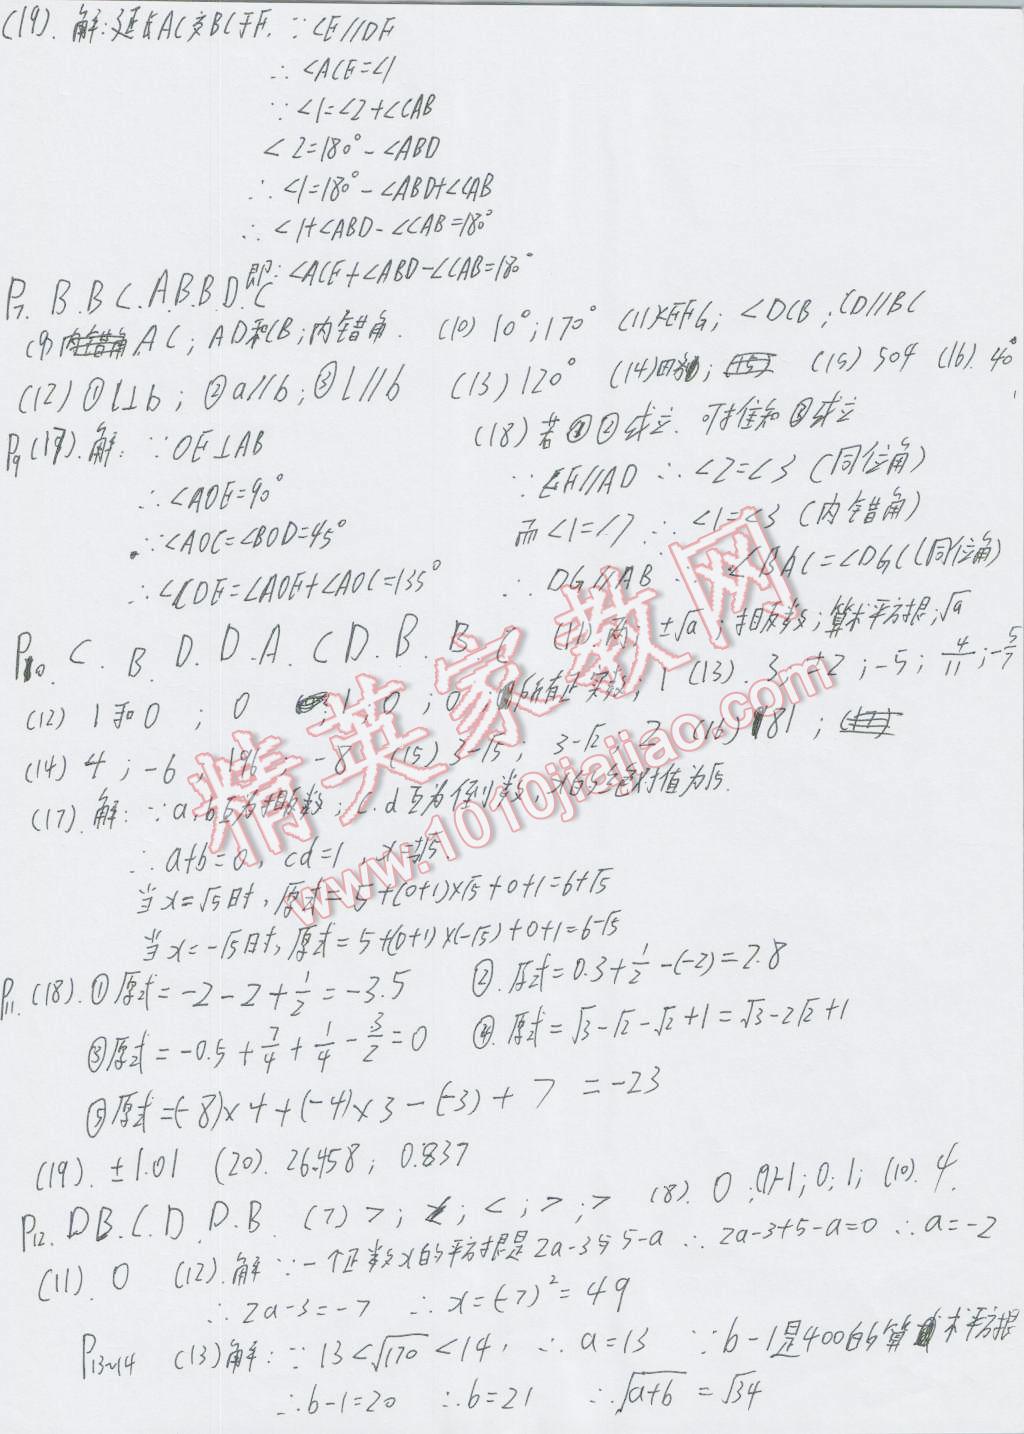 (19). 解:延长AC交BC于F. ∵ ∠E//DF
∴ ∠ACE=∠1
∵ ∠1=∠2+∠CAB
∠2=180°-∠ABD
∴ ∠1=180°-∠ABD+∠CAB
∴ ∠1+∠ABD-∠CAB=180°
即: ∠ACE+∠ABD-∠CAB=180°
P7. B.B C.A B.B D.C
(9) AC; AD和CB;内错角. (10) 10°;170° (11) EFG; ∠DCB; CD//BC
(12) ①l⊥b; ②a//b; ③l//b (13) 120° (14) (15) 504 (16). 40°
P9 (17). 解: ∵ OE⊥AB
∴ ∠AOE=90°
∵ ∠AOC=∠BOD=45°
∴ ∠COE=∠AOE+∠AOC=135°
(18) 若①②成立. 可推知③成立
∵ EF//AD ∴ ∠2=∠3 (同位角)
而∠1=∠2 ∴ ∠1=∠3 (内错角)
∴ DG//AB ∴ ∠BAC=∠DGC(同位角)
P10. C. B. D. D. A. C D. B. B. C (11) 两 ±√a; 相反数; 算术平方根; √a
(12) 1和0; 0 1 0; 0; 所有正实数; 1 (13). 3, ±2; -5; 4/11; -5/7
(14) 4; -6; 196; -8 (15) 3-√5; 3-√2; 2 (16) 81;
(17). 解: ∵ a,b互为相反数; c.d互为倒数, x的绝对值为√5.
∴ a+b=0, cd=1, x=±√5
当x=√5时, 原式=5+(0+1)×√5+0+1=6+√5
当x=-√5时, 原式=5+(0+1)×(-√5)+0+1=6-√5
P11. (18). ①原式=-2-2+1/2=-3.5 ②. 原式=0.3+1/2-(-2)=2.8
③原式=-0.5+7/4+1/4-3/2=0 ④. 原式=√3-√2-√2+1=√3-2√2+1
⑤原式=(-8)×4+(-4)×3-(-3)+7 =-23
(19). ±1.01 (20). 26.458; 0.837
P12. D B.C.D D.B (7) >; <; <; >; > (8). 0; (9)-1; 0; 1; (10). 4.
(11). 0 (12). 解 ∵ 一个正数x的平方根是2a-3与5-a ∴ 2a-3+5-a=0 ∴ a=-2
∴ 2a-3=-7 ∴ x=(-7)²=49
P13~14 (13)解: ∵ 13<√170<14, ∴ a=13 ∵ b-1是400的算术平方根
∴ b-1=20 ∴ b=21 ∴ √a+b=√34
精英家教网
www.1010jiajiao.com